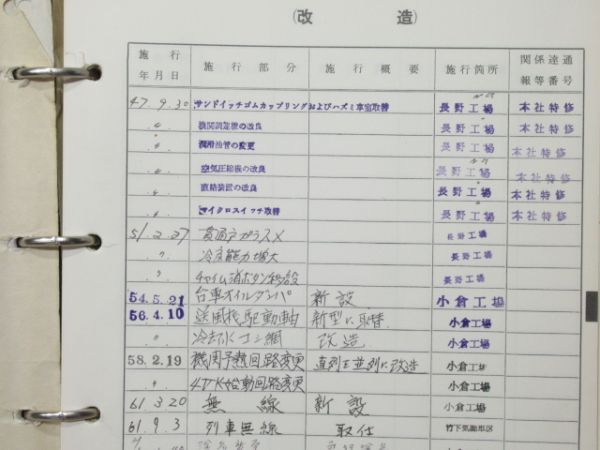 (改 造)
施行年月日 施行部分 施行概要 施行箇所 関係達通報等番号
47.9.30 サンドイッチゴムカップリングおよびハズミ車室取替 長野工場 本社特修
〃 機関調速機の改良 長野工場 本社特修
〃 潤滑油管の変更 長野工場 本社特修
〃 空気圧縮機の改良 長野工場 本社特修
〃 直結装置の改良 長野工場 本社特修
〃 マイクロスイッチ取替 長野工場 本社特修
51.2.27 貫通戸ガラスメ 長野工場
〃 冷房能力増大 長野工場
〃 チャイム消ボタン移設 長野工場
54.5.21 台車オイルダンパ 新設 小倉工場
56.4.10 送風機駆動軸 新型に取替 小倉工場
〃 冷却水コシ網 改造 小倉工場
58.2.19 機関予熱回路変更 直列を並列に改造 小倉工場
〃 4DK始動回路変更 小倉工場
61.3.20 無線 新設 小倉工場
61.9.3 列車無線 取付 竹下気動車区